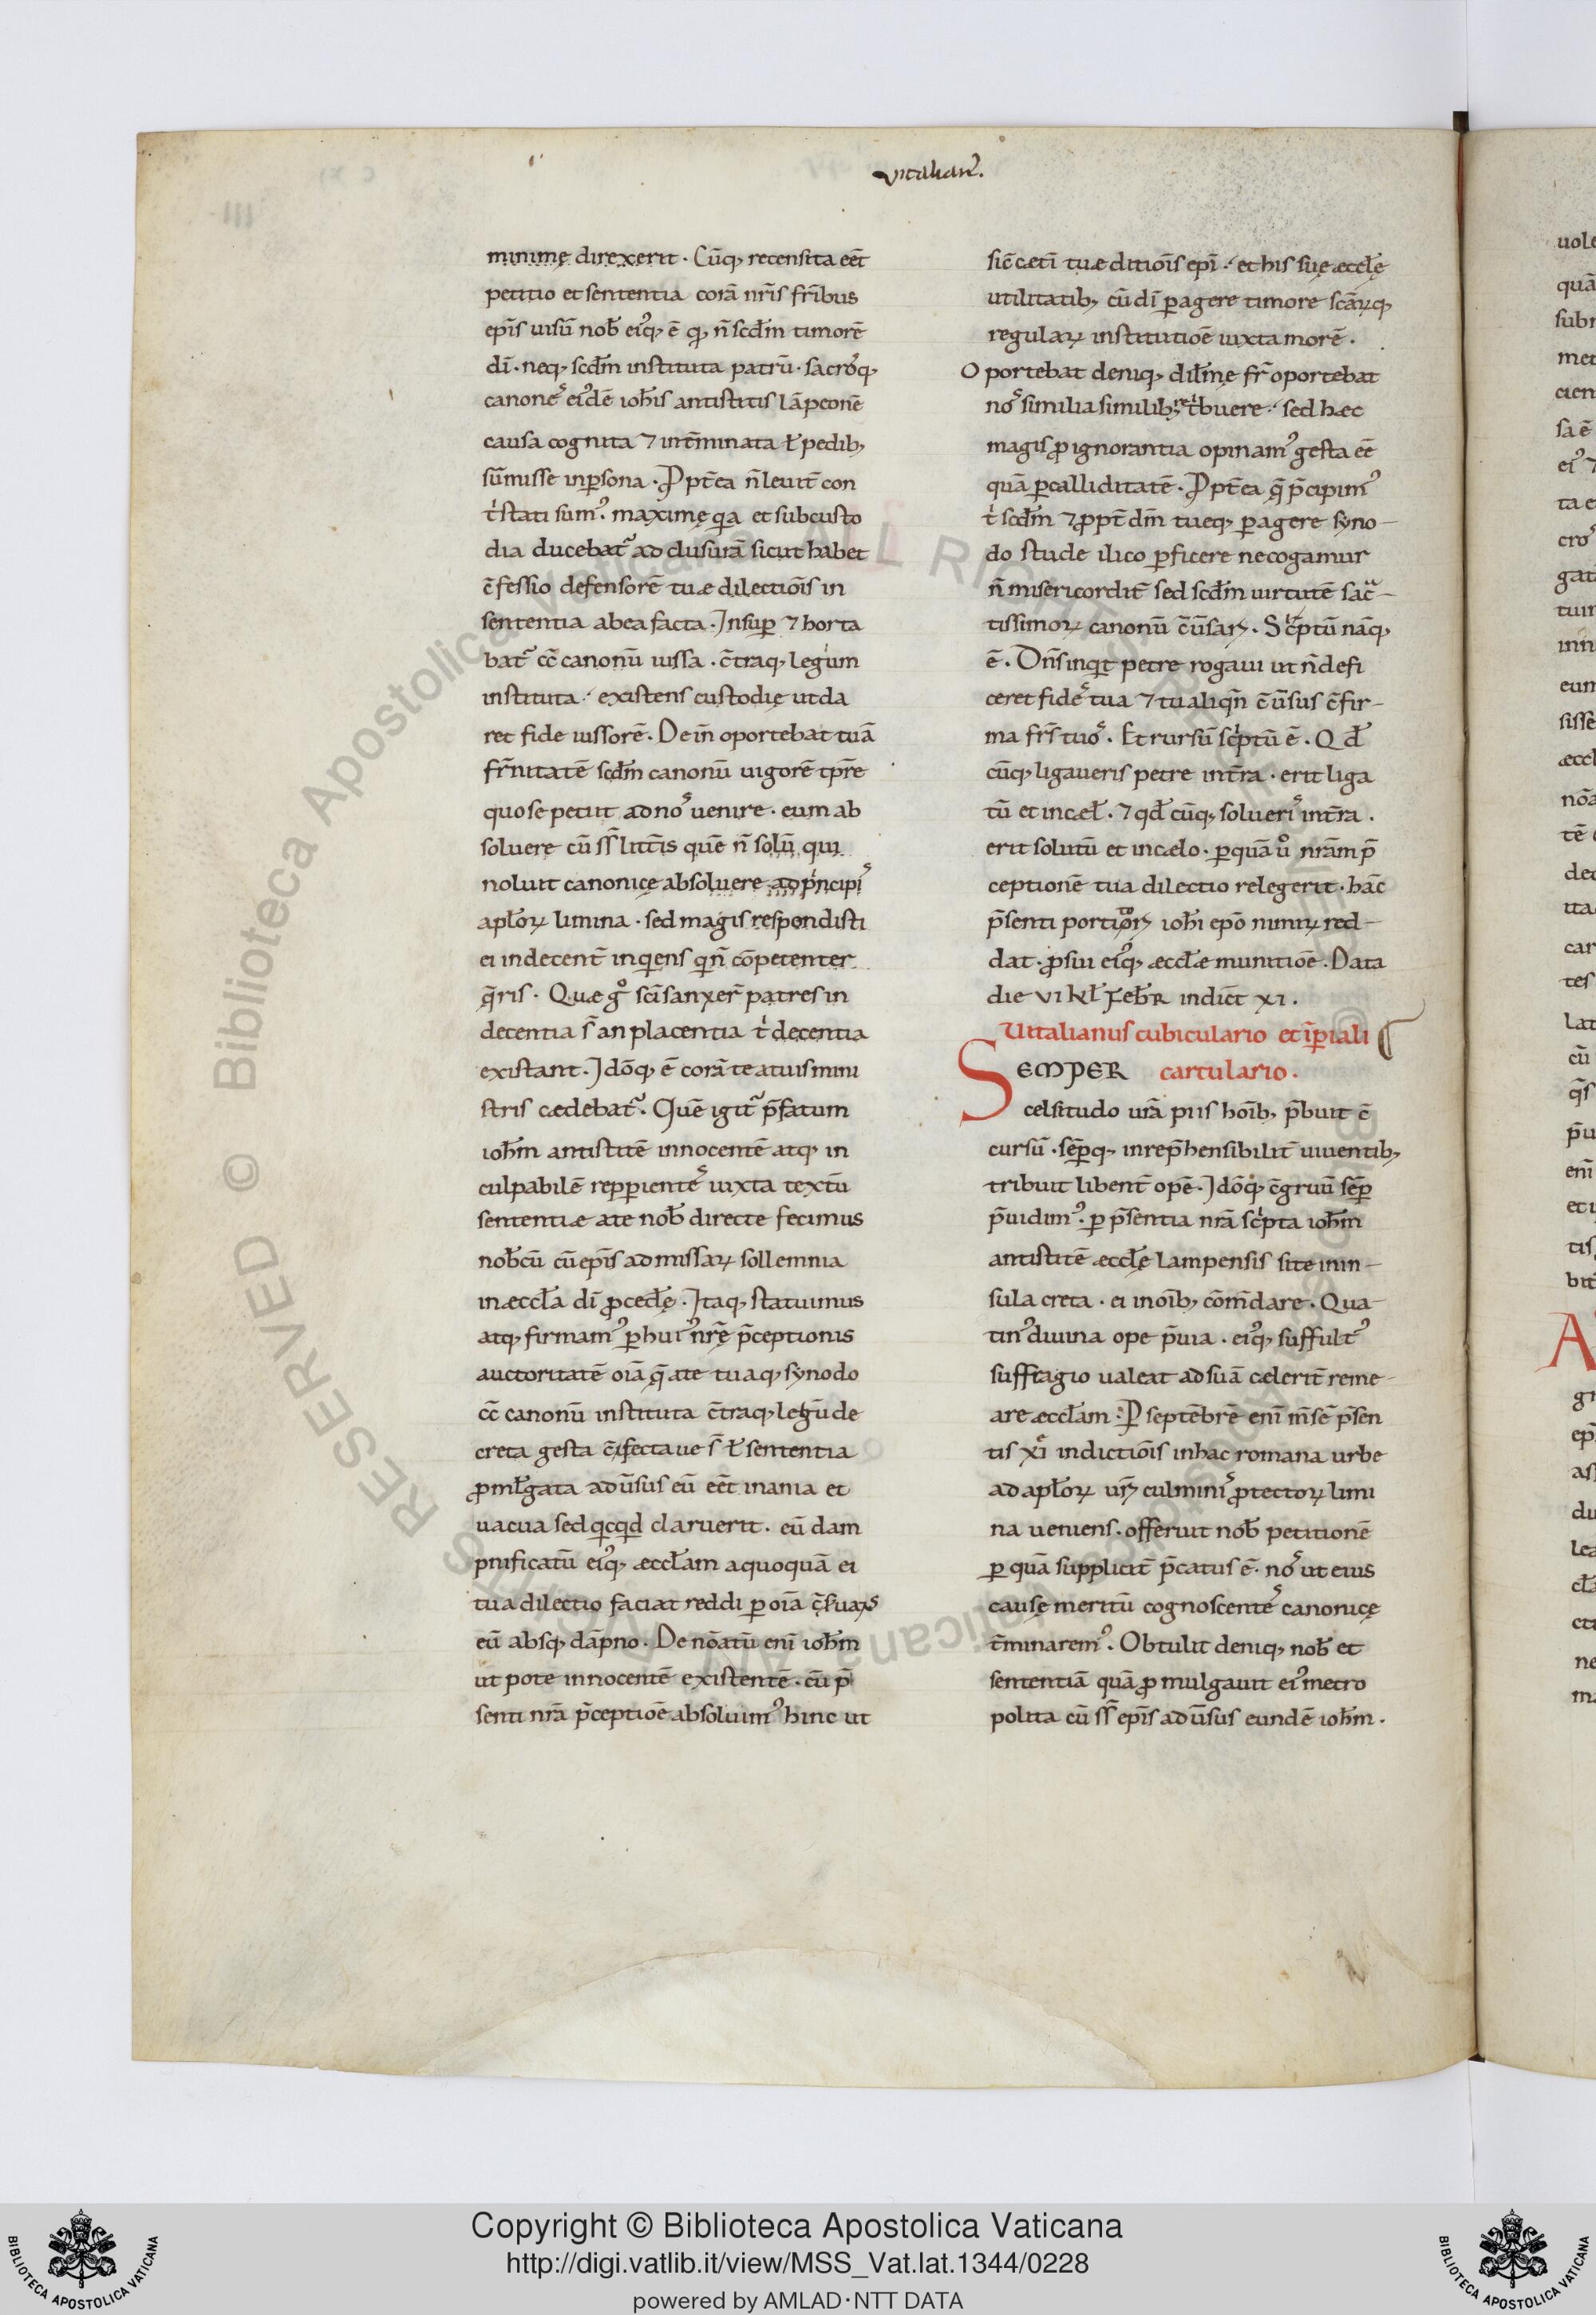 vitalian᾽.
minimę direxerit · Cūq; recensita eēt
petitio et sententia corā nr̄is fr̄ibus
ep̄is uisū nob̄ ei᾽q; ē q, n̄ scd̄m timorē
dī · neq; scd̄m instituta patrū · sacro᾽q;
canonē᾽ ei᾽dē ioh̄is antistitis lāpeonē
causa cognita ⁊ int̄minata ł pedib;
sūmisse inp̱sona · Ppt̄ea n̄ leuit̄ con
t᾽stati sum᾽. maximę qa et subcusto
dia ducebat᾽ ad clusurā sicut habet
c̄fessio defensorē tuæ dilectiōis in
sententia abea facta · Insup̱ ⁊ horta
bat᾽ cc̄ canonū iussa · c̄traq; legum
instituta · existens custodię utda
ret fide iussorē · Dein̄ oportebat tuā
fr̄nitatē scd̄m canonū uigorē tp̄re
quo se petiit ad no᾽ uenire · eum ab
soluere cū ss̄ litt̄is quē n̄ solū qui
noluit canonicę absoluere ad pͥncipi᾽
apłoꝝ limina · sed magis respondisti
ei indecent̄ inqens qn̄ cōpetenter
q̄ris · Quæ gͦ sc̄i sanxer̄ patres in
decentia s̄ an placentia tͥ decentia
existant · Idōq; ē corā te atuis mini
stris cædebat᾽. Quē igit᾽ p̄fatum
ioh̄m antistitē innocentē atq; in
culpabilē repp̱ientē᾽ iuxta textū
sententiæ ate nob̄ directe fecimus
nob̄cū cū ep̄is ad missaꝝ sollemnia
in æccła dī ꝓcedꝉę · Itaq; statuimus
atq; firmam᾽ p̱ hui᾽ nr̄ę p̄ceptionis
auctoritatē oīa q̄ ate tuaq; synodo
cc̄ canonū instituta c̄traq; legū de
creta gesta c̄ifecta ue s̄ ł sententia
ꝓmłgata ad ūsus eū eēt inania et
uacua sed qcqd claruerit · eū dam
pnificatū ei᾽q; æccłam aquoquā ei
tua dilectio faciat reddi p̱ oīa c̄ſuaꝝ
eū absq; dāpno · De nōatū enī ioh̄m
ut pote innocentē existentē · cū p̄
senti nr̄a p̄ceptiōe absoluim᾽ hinc ut
sic̄ cæti tuæ ditiōis ep̄i · et his suę æcclę
utilitatib; cū dī p̱agere timore sc̄aꝝq;
regulaꝝ institutiōe iuxta morē ·
Oportebat deniq; dil̄me fr̄ oportebat
no᾽ similia similib; retͥbuere · sed hæc
magis ꝓ ignorantia opinam᾽ gesta eē
quā p̱ calliditatē · Ppt̄ea q̄ p̄cipim᾽
tͥ scd̄m ⁊ ꝓpt̄ dm̄ tueq; p̱agere syno-
do stude ilico p̱ficere ne cogamur
n̄ misericordit̄ sed scd̄m uirtutē sac̄-
tissimoꝝ canonū c̄ūsaꝝ · Scͥptū nāq;
ē · Dn̄s inqt petre rogaui ut n̄ defi
ceret fidē᾽ tua ⁊ tu aliqn̄ c̄ūsus c̄fir-
ma fr̄s tuo᾽. Et rursū scͥptū ē · Qđ
cūq; ligaueris petre int̄ra · erit liga
tū et in cæł · ⁊ qđ cūq; soluerі᾽ int̄ra ·
erit solutū et in cælo · p̱ quā uͦ nr̄am p̄
ceptionē tua dilectio relegerit · hāc
p̄senti portitoꝝ ioh̄i ep̄o nimiꝝ red-
dat · ꝓ sui ei᾽q; æccłæ munitiōe · Data
die vi kł feb̄r indict̄ xi ·
Uitalianus cubiculario et īp̱iali
SEMPER cartulario ·
celsitudo ur̄a piis hoīb; p̄buit c̄
cursū · sēp̱q; inrep̄hensibilit̄ uiuentib;
tribuit libent̄ opē · Idōq; c̄gruū sēp̱
p̄uidim᾽. p̱ p̄sentia nr̄a scͥpta ioh̄m
antistitē æccłę Lampensis site inin-
sula creta · ei in oīb; cōm̄dare · Qua
tin᾽ diuina ope p̄uia · ei᾽q; suffult᾽
suffragio ualeat ad suā celerit̄ reme-
are æccłam · P septēbrē enī m̄sē p̄sen
tis xi᾽ indictiōis in hac romana urbe
ad apłoꝝ ur̄ꝝ culmini᾽ ꝓtectoꝝ limi
na ueniens · offeruit nob̄ petitionē
p̱ quā supplicit̄ p̄catus ē · no᾽ ut eius
causę meritū cognoscentē᾽ canonicę
t̄minarem᾽. Obtulit deniq; nob̄ et
sententiā quā ꝓmulgauit ei᾽ metro
polita cū ss̄ ep̄is ad ūsus eundē ioh̄m ·
© Biblioteca Apostolica Vaticana ALL RIGHTS RESERVED
Copyright © Biblioteca Apostolica Vaticana
http://digi.vatlib.it/view/MSS_Vat.lat.1344/0228
powered by AMLAD·NTT DATA
BIBLIOTECA APOSTOLICA VATICANA
BIBLIOTECA APOSTOLICA VATICANA